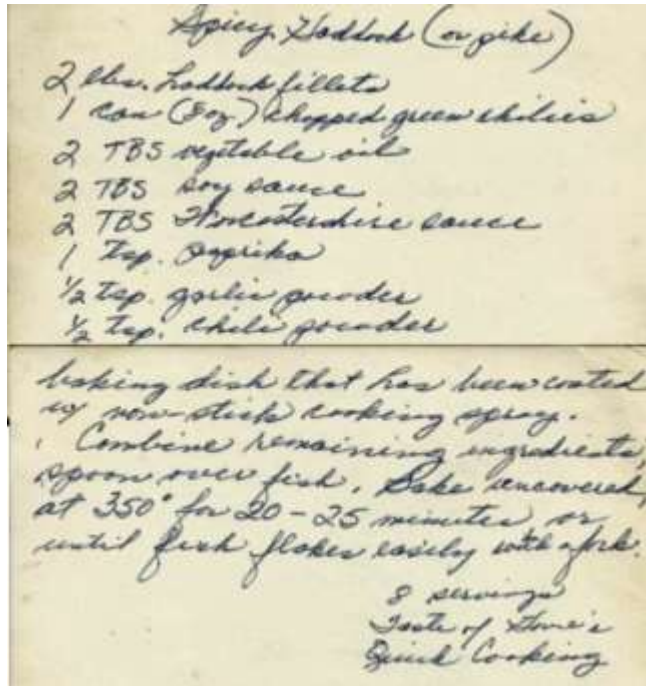 Spicy Haddock (or pike)
2 lbs. haddock fillets
1 can (8oz) chopped green chilies
2 TBS vegetable oil
2 TBS soy sauce
2 TBS Worcestershire sauce
1 tsp. Paprika
1/2 tsp. garlic powder
1/2 tsp. chili powder
baking dish that has been coated
w/ non-stick cooking spray.
Combine remaining ingredients,
spoon over fish. Bake uncovered,
at 350° for 20-25 minutes or
until fish flakes easily with a fork.
8 servings
Taste of Home's
Quick Cooking